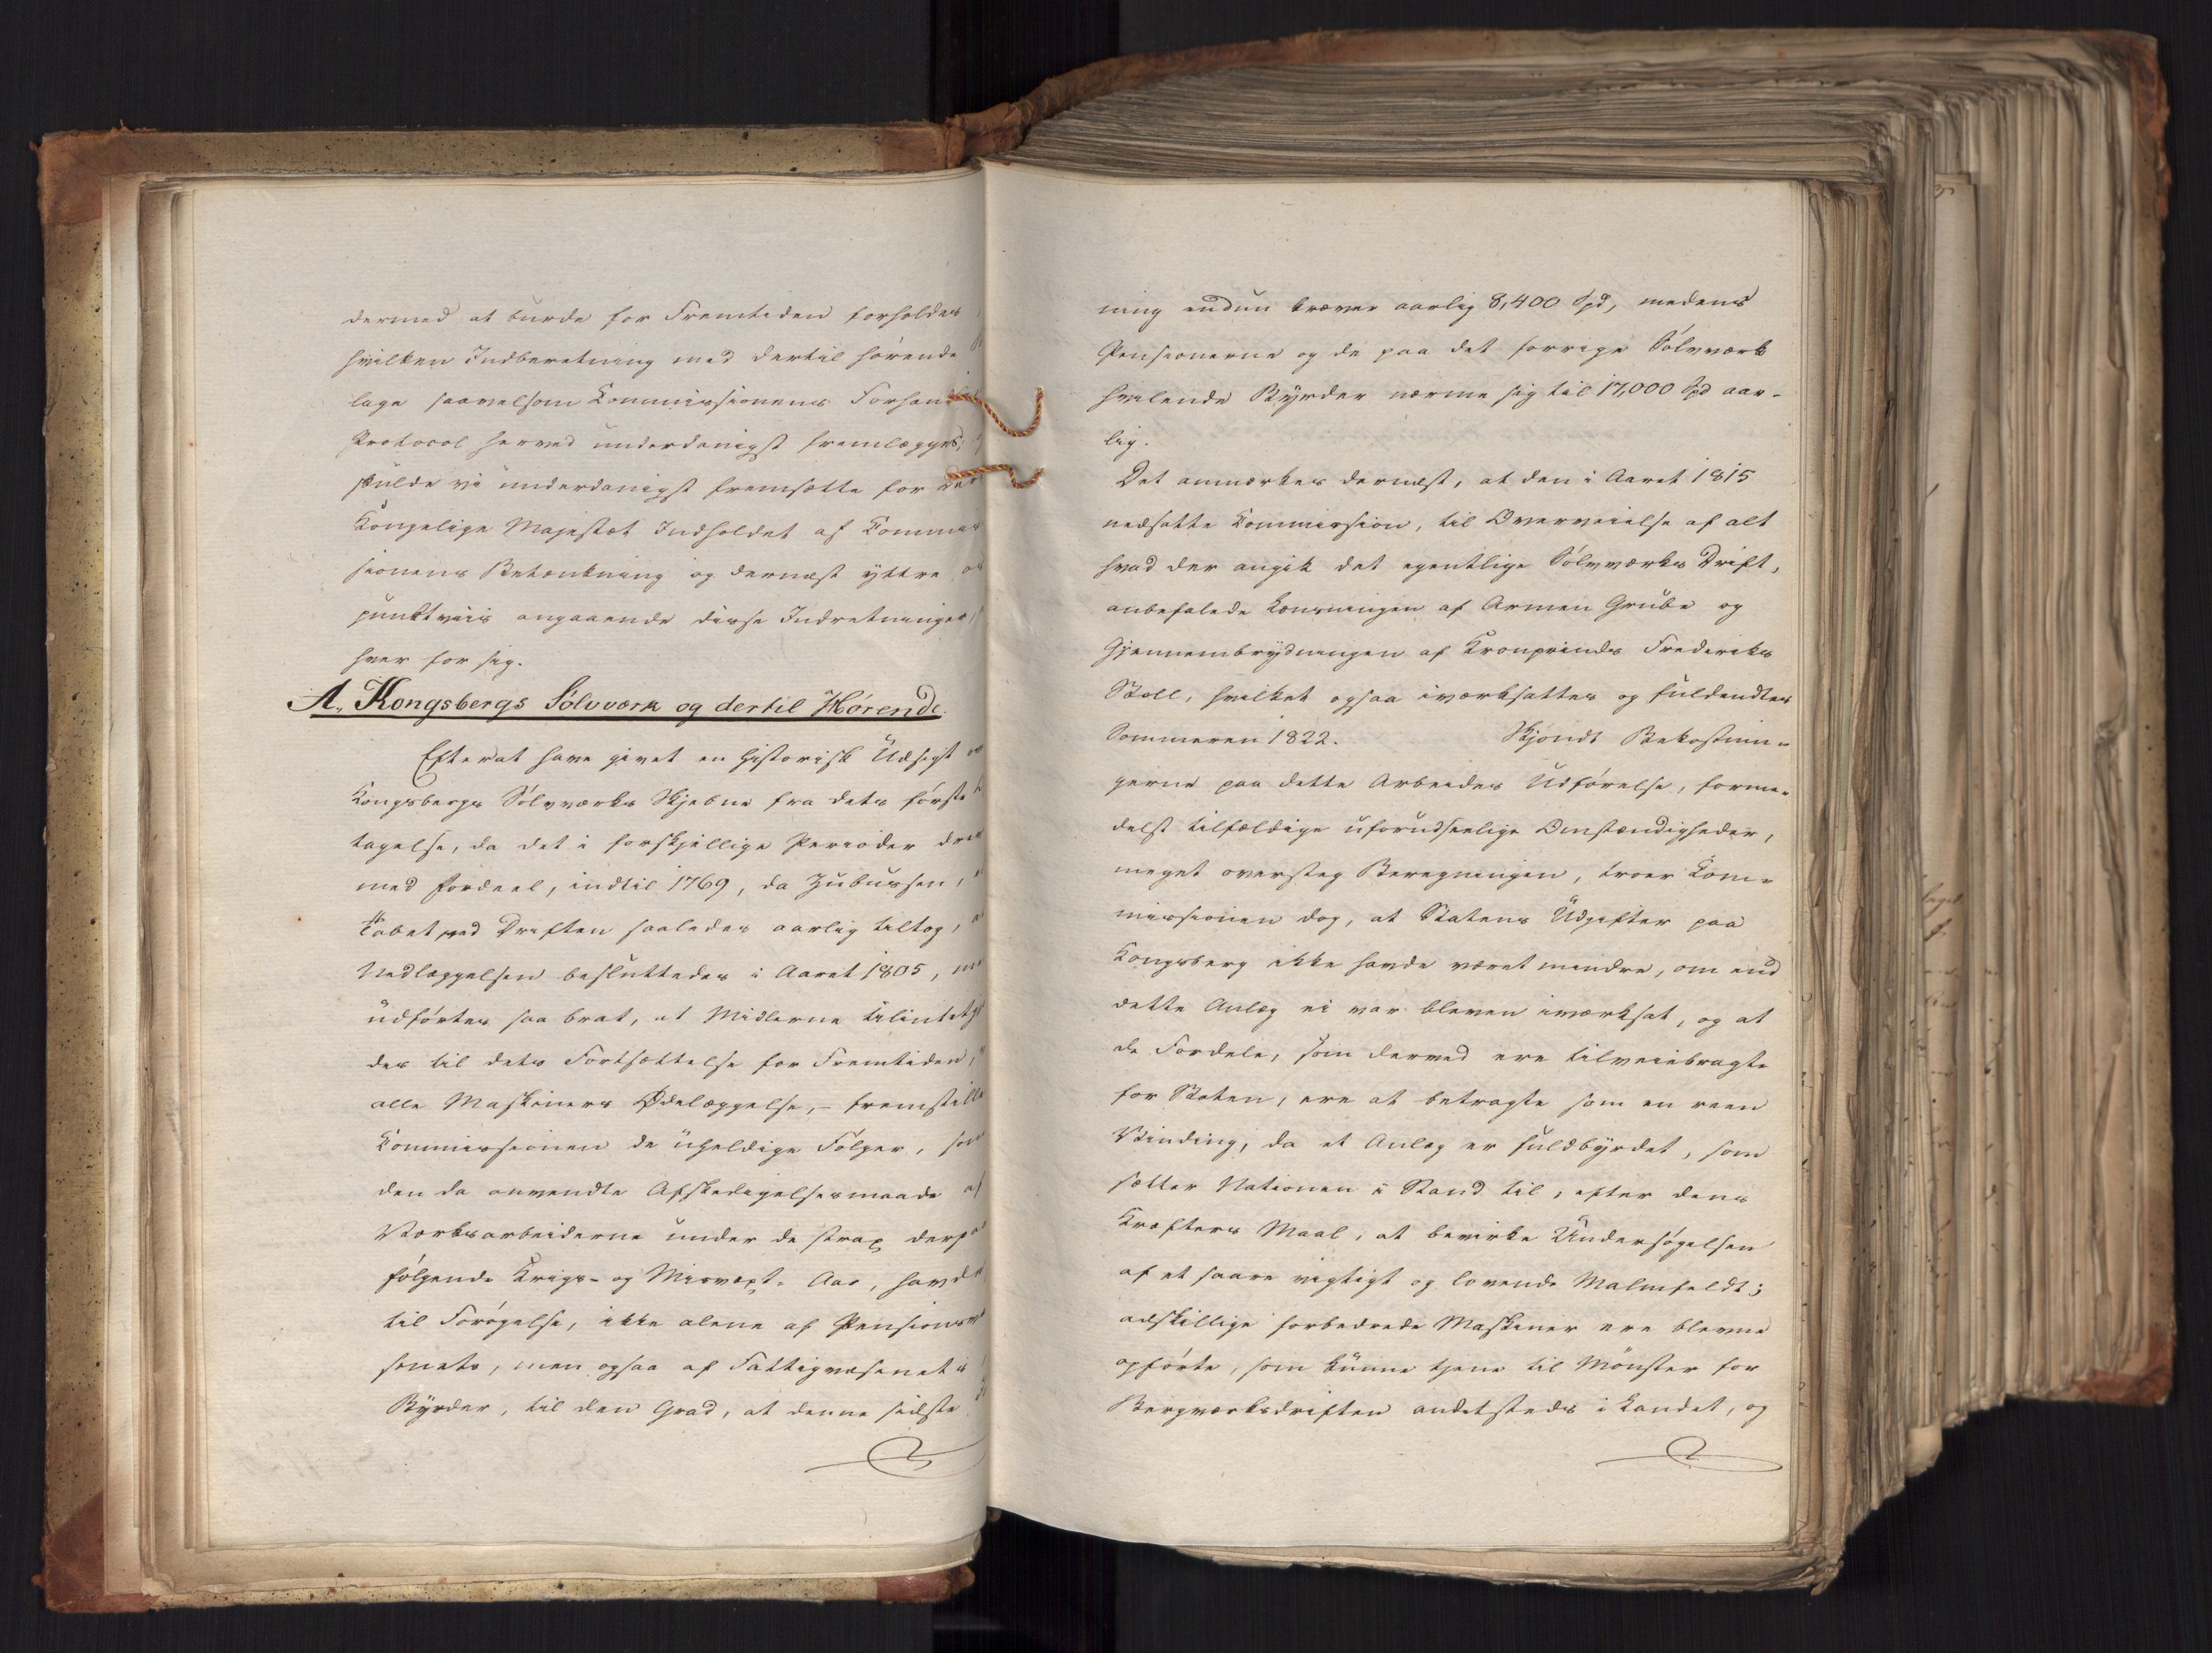 dermed at burde for Fremtiden forholdes
hvilken Indberetning med dertil hørende
lage saavelsom Kommissionens Forhand
Protocol herved underdanigst fremlægges,
skulde vi underdanigst fremsætte for
Kongelige Majestæt Indholdet af Kommis
sionens Betænkning og dernæst yttre
punktviis angaaende disse Indretninger,
hver for sig.
A., Kongsbergs Sølvværk og dertil Hørende.
Efterat have givet en historisk Udsigt
Kongsbergs Sølvværks Skjebne fra dets første
tagelse, da det i forskjellige Perioder drev
med Fordeel, indtil 1769, da Zubussen,
Tabet ved Driften saaledes aarlig tiltog,
Nedlæggelsen besluttedes i Aaret 1805,
udførtes saa brat, at Midlerne tilintetgj
des til dets Fortsættelse for Fremtiden,
alle Maskiners Ødelæggelse, – fremstille
Kommissionen de uheldige Følger, som
den da anvendte Afskedigelsesmaade af
Værksarbeiderne under de strax derpaa
følgende Krigs- og Misvæxt-Aar, havde
til Forøgelse, ikke alene af Pensionsvæ
senets, men ogsaa af Fattigvæsenets
Byrder, til den Grad, at denne sidste
ning endnu kræver aarlig 8,400 Spd, medens
Pensionerne og de paa det forrige Sølvværk
hvilende Byrder nærme sig til 17,000 Spd aar-
lig.
Det anmærkes dernæst, at den i Aaret 1815
nedsatte Kommission, til Overveielse af alt
hvad der angik det egentlige Sølvværks Drift,
anbefalede Lænsningen af Armen Grube og
Gjennembrydningen af Kronprinds Frederiks
Stoll, hvilket ogsaa iværksattes og fuldendtes
Sommeren 1822. Skjøndt Bekostnin-
gerne paa dette Arbeides Udførelse, forme-
delst tilfældige uforudseelige Omstændigheder,
meget oversteg Beregningen, troer Kom-
missionen dog, at Statens Udgifter paa
Kongsberg ikke havde været mindre, om end
dette Anlæg ei var bleven iværksat, og at
de Fordele, som derved ere tilveiebragte
for Staten, ere at betragte som en reen
Vinding, da et Anlæg er fuldbyrdet, som
sætter Nationen i Stand til, efter dens
Kræfters Maal, at bevirke Undersøgelsen
af et saare vigtigt og lovende Malmfeldt;
adskillige forbedrede Maskiner ere blevne
opførte, som kunne tjene til Mønster for
Bergværksdriften andetsteds i Landet, og